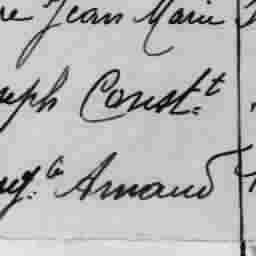 re Jean Marie
seph Const.t
ug.te Arnaud